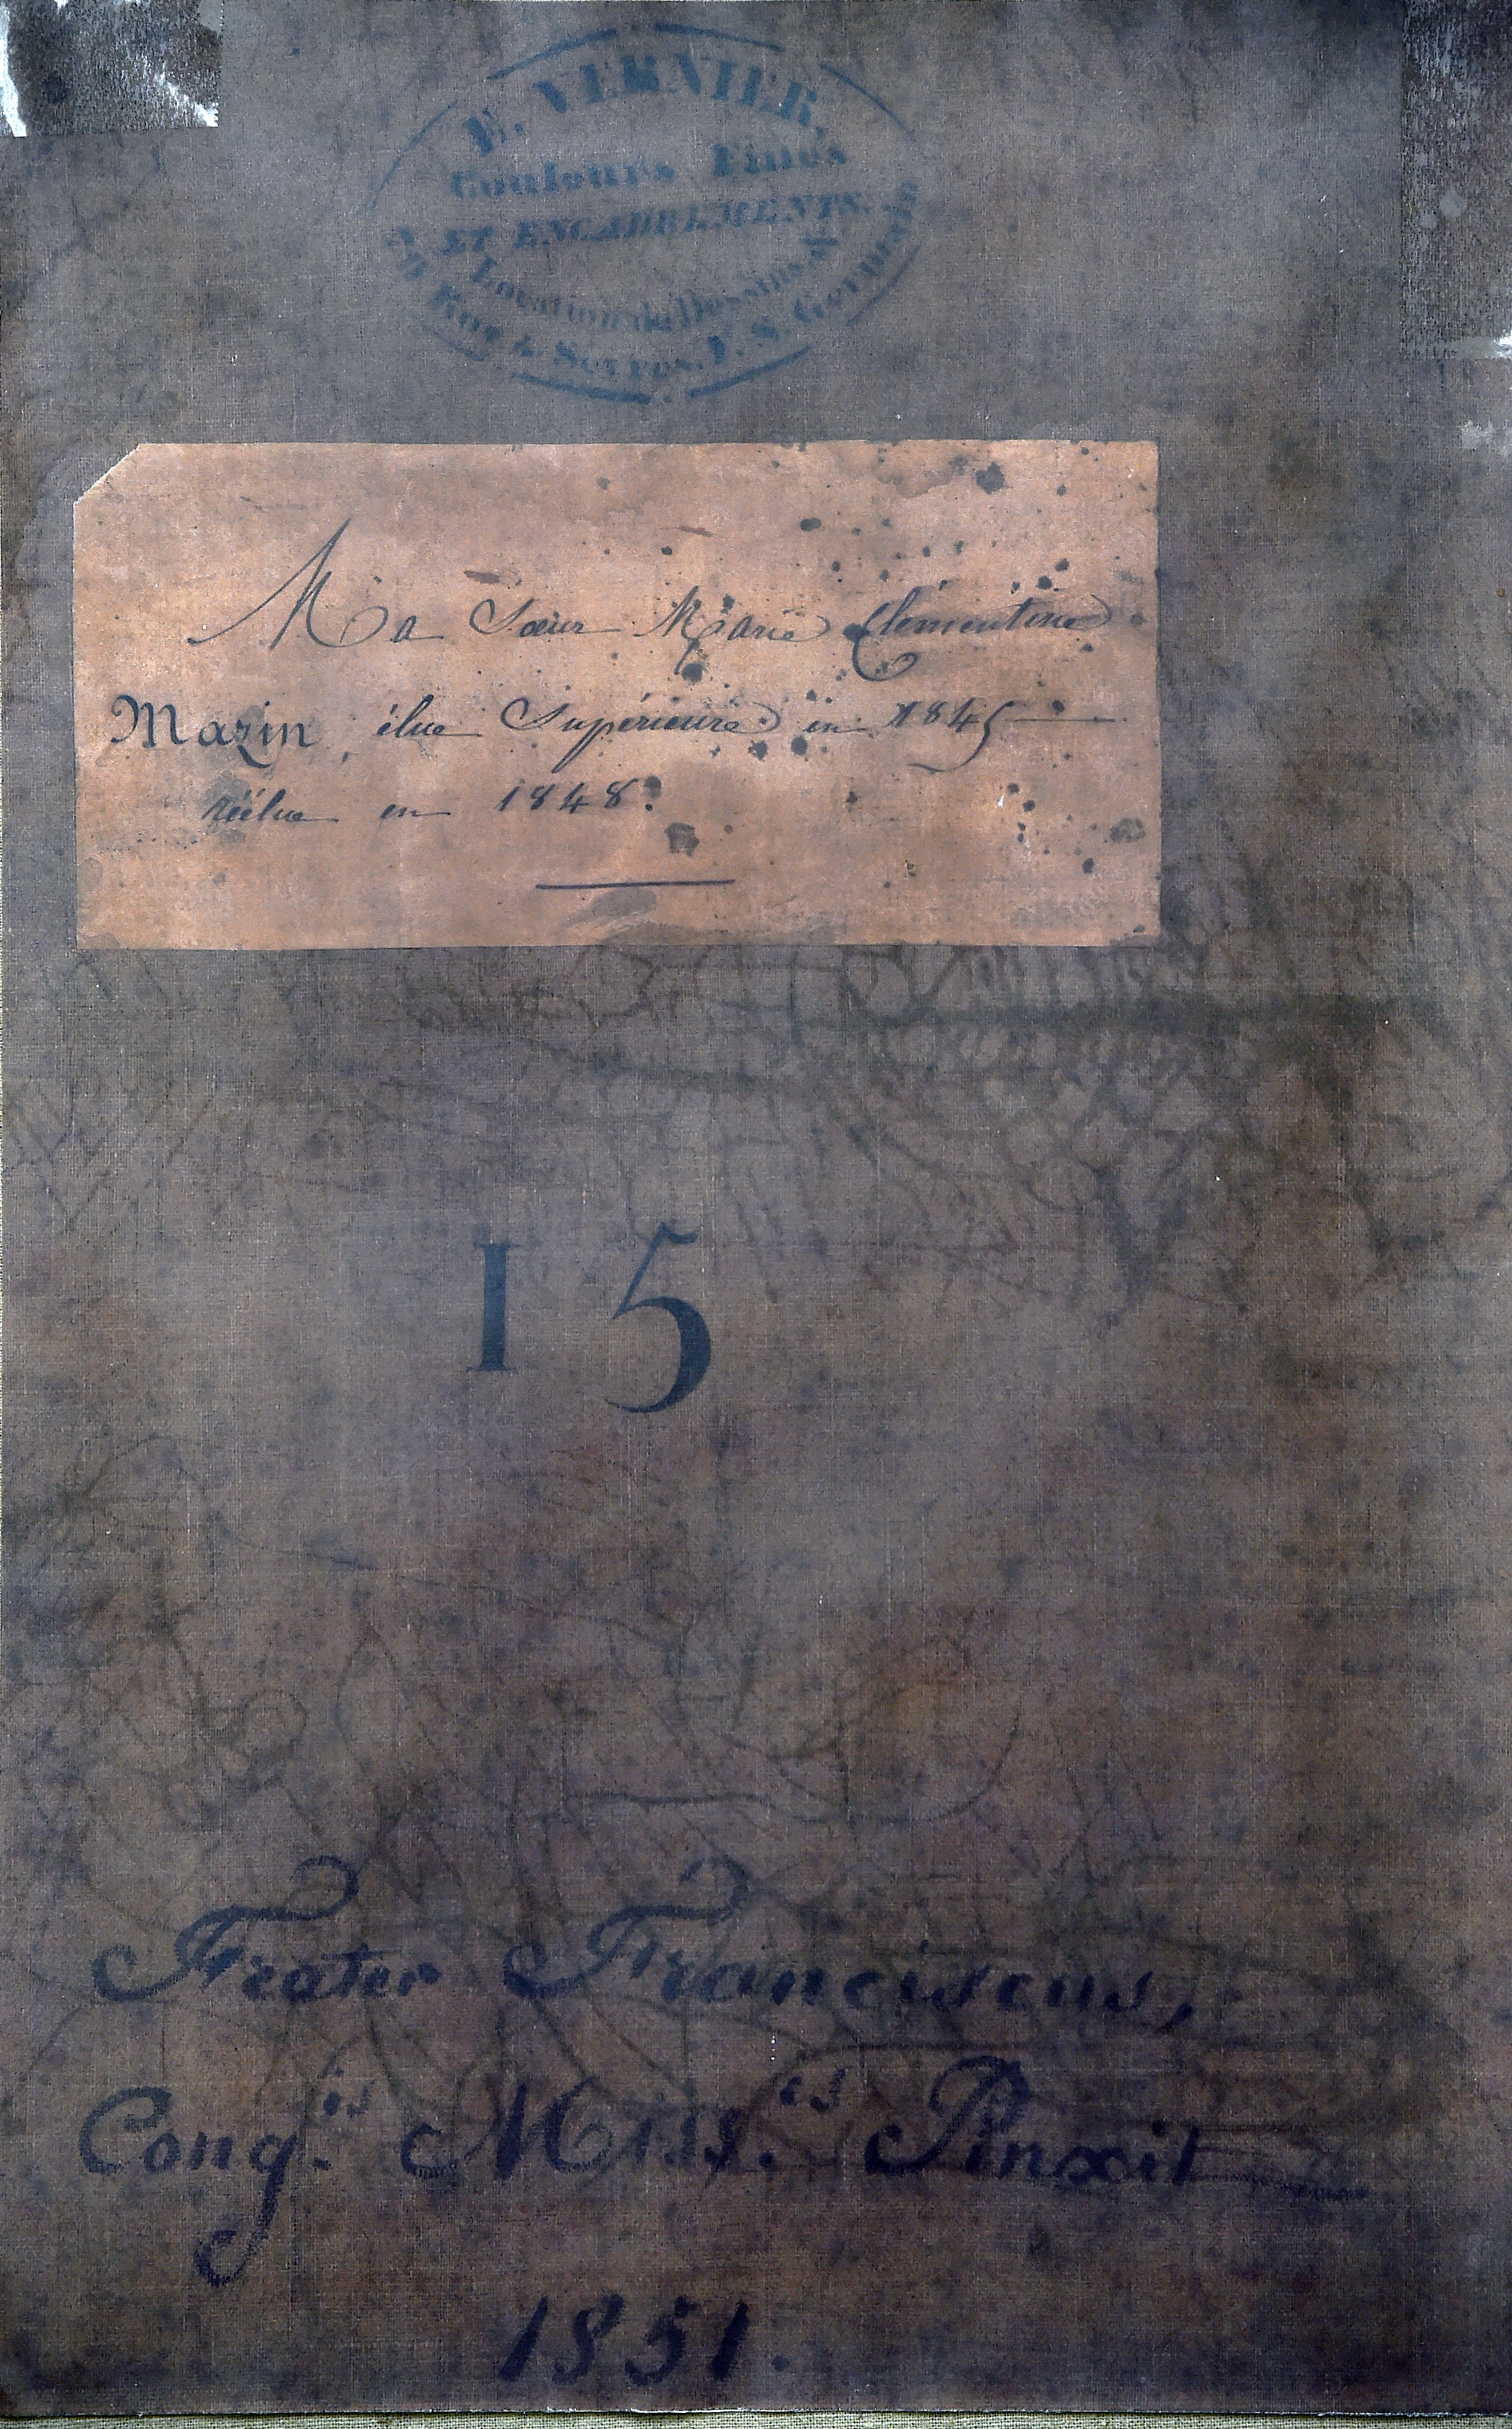 E. VERNIER,
Couleurs Fines
ET ENCADREMENTS.
Location de Dessins &
Rue de Sèvres, F. S. Germain
Ma Sœur Marie Clémentine
Mazin, élue Supérieure en 1845
réélue en 1848.
15
Frater Franciscus,
Cong.is Miss.is Pinxit
1851.